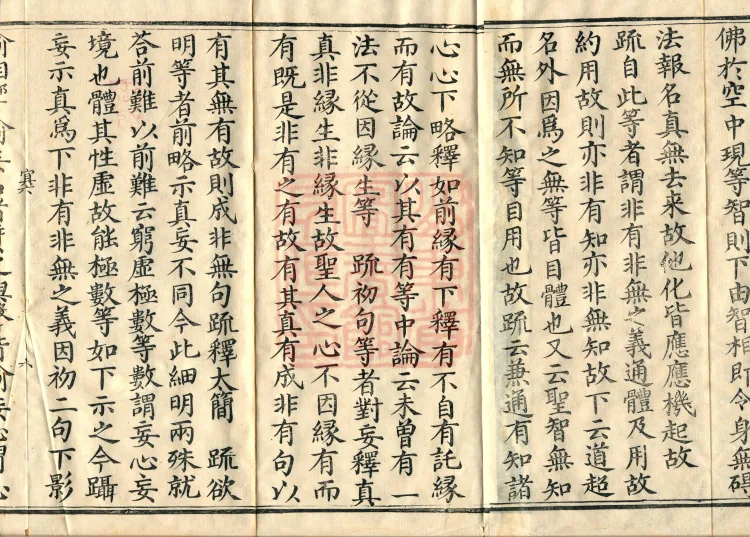 佛於空中現等智則下由智相即令身無礙
法報名真無去来故他化皆應應機起故
䟽自此等者謂非有非無之義通體及用故
約用故則亦非有知亦非無知故下云道超
名外因爲之無等皆目體也又云聖智無知
而無所不知等目用也故䟽云兼通有知諸
心心下略釋如前緣有下釋有不自有託緣
而有故論云以其有有等中論云未曾有一
法不從因緣生等 䟽初句等者對妄釋真
真非緣生非緣生故聖人之心不因緣有而
有既是非有之有故有其真有成非有句以
有其無有故則成非無句䟽釋太簡 䟽欲
明等者前略示真妄不同今此細明兩殊就
荅前難以前難云窮虛極數等數謂妄心妄
境也體其性虛故能極數等如下示之今躡
妄示真爲下非有非無之義因初二句下影